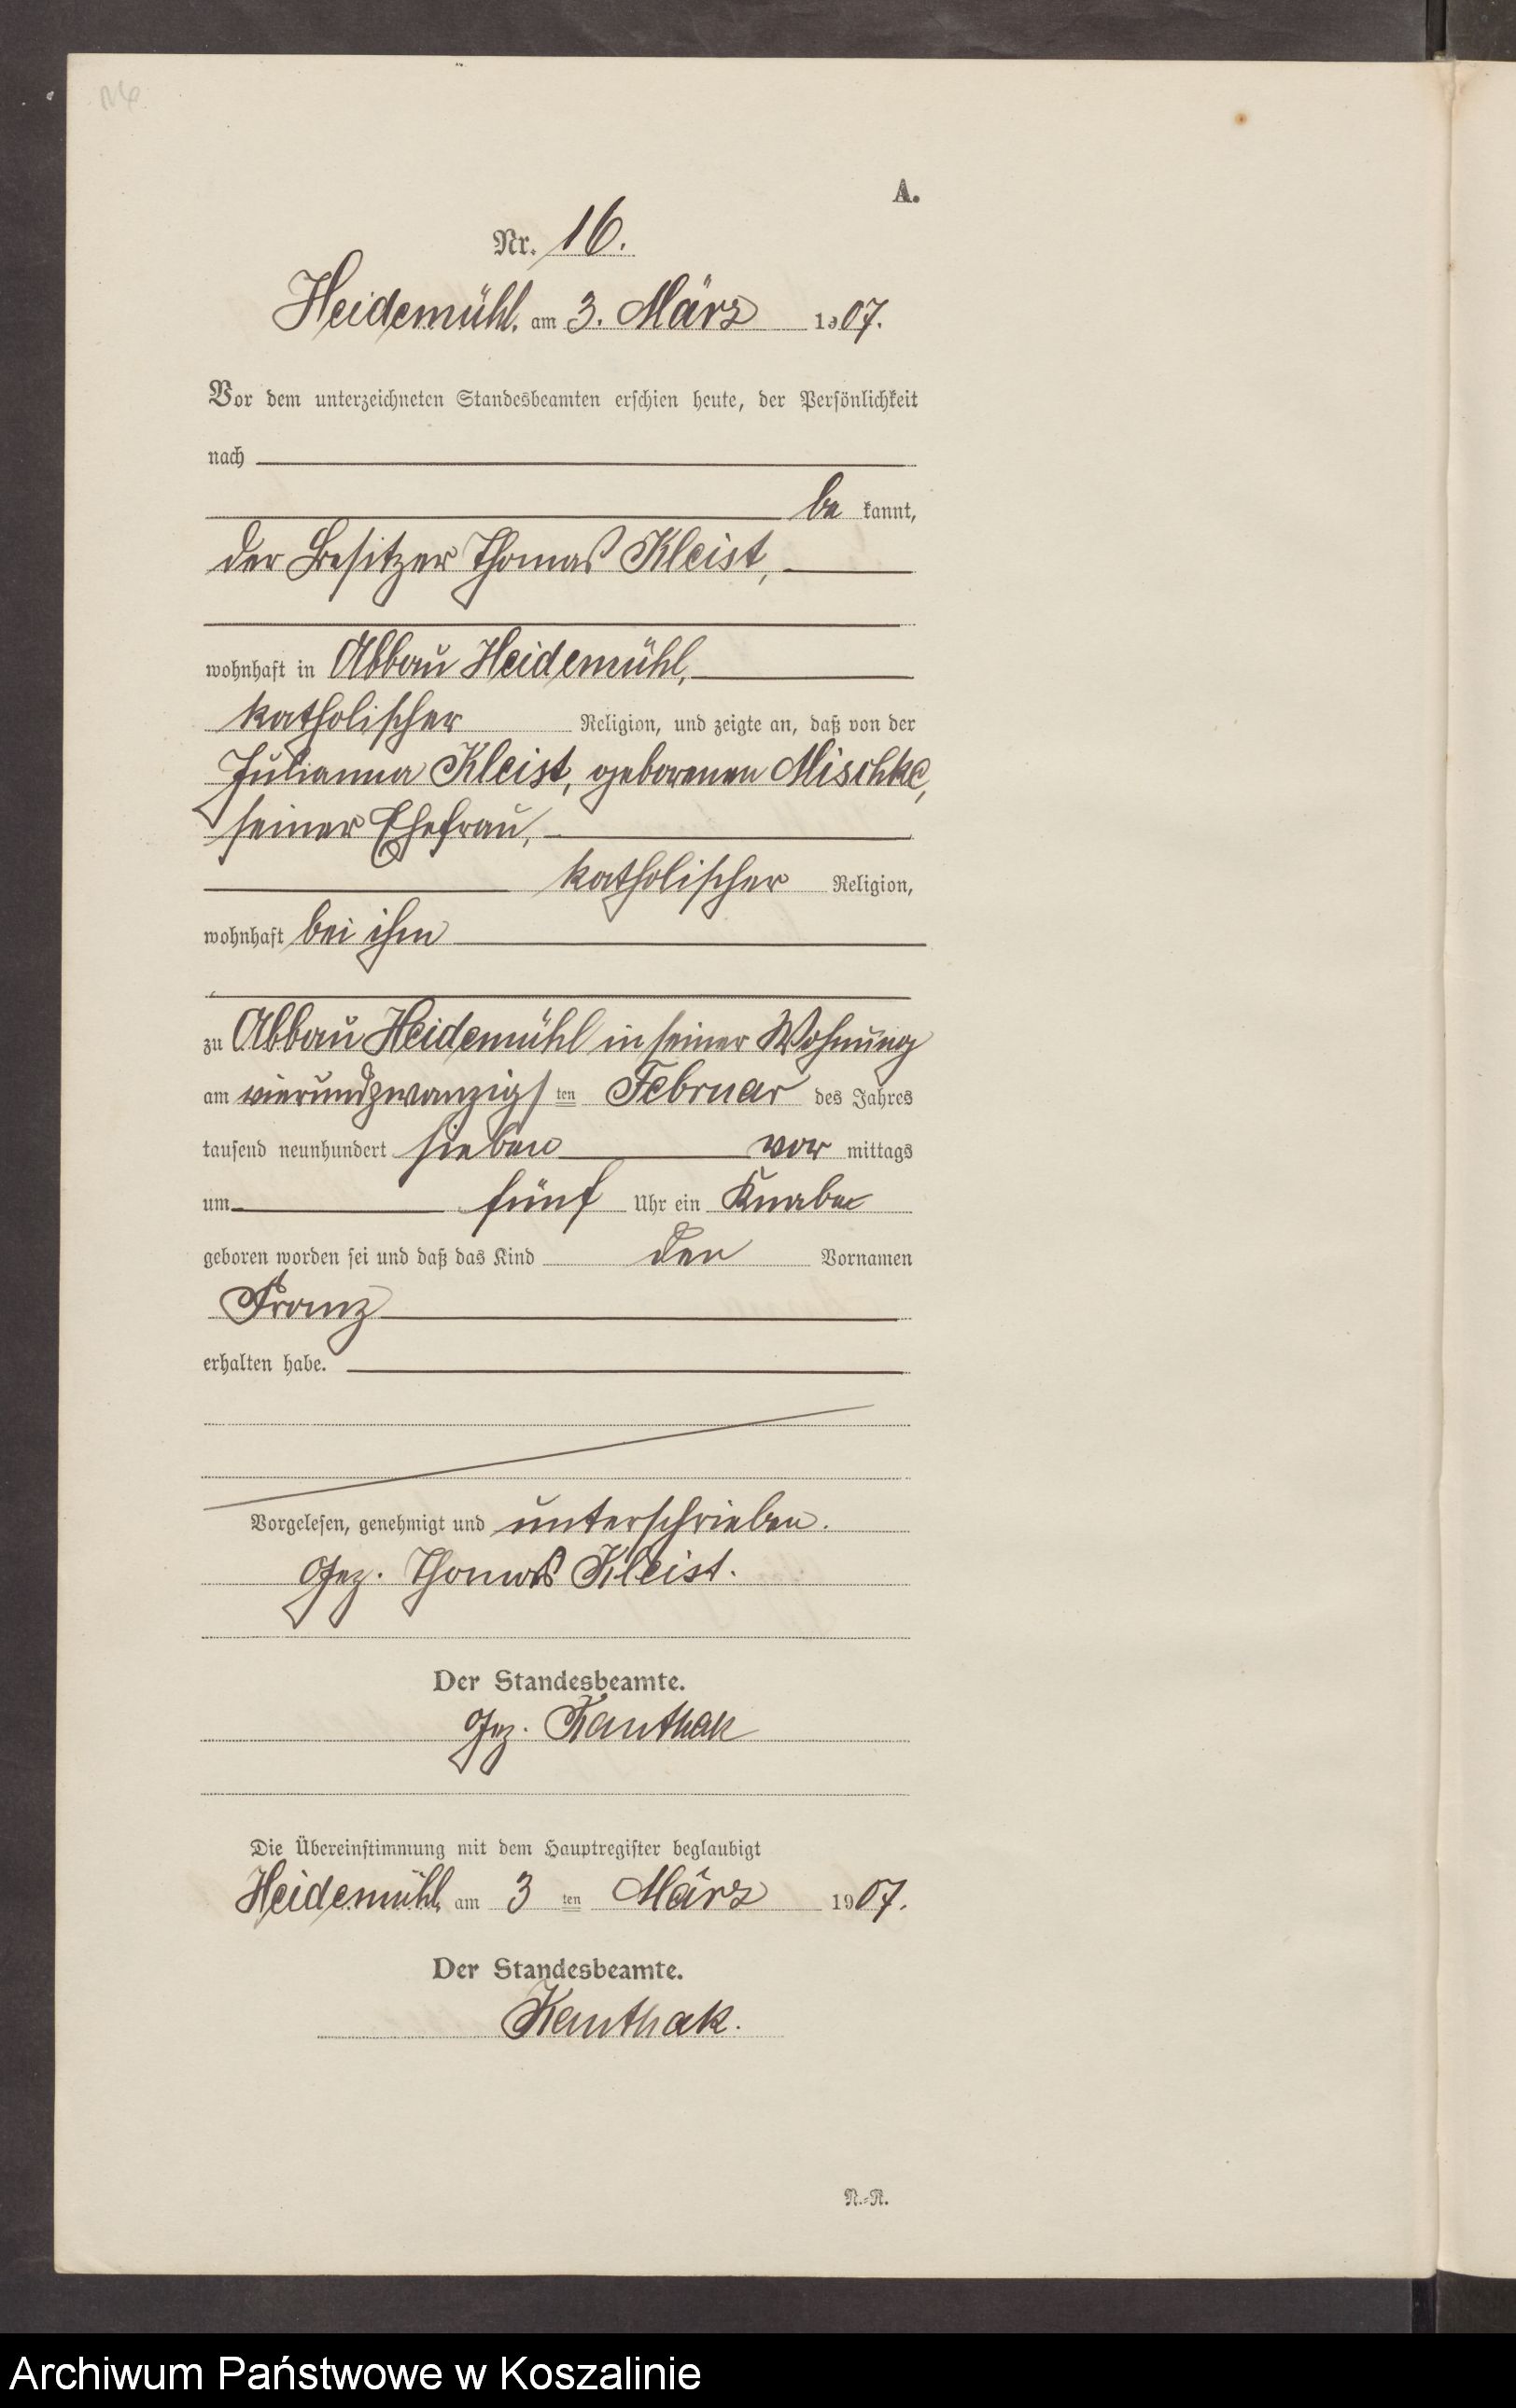 A.
Nr. 16.
Heidemühl, am 3. März 1907.
Vor dem unterzeichneten Standesbeamten erschien heute, der Persönlichkeit
nach
be kannt,
der Besitzer Thomas Kleist,
wohnhaft in Abbau Heidemühl,
katholischer Religion, und zeigte an, daß von der
Julianna Kleist, geborenen Mischke,
seiner Ehefrau,
katholischer Religion,
wohnhaft bei ihm
zu Abbau Heidemühl in seiner Wohnung
am vierundzwanzigsten Februar des Jahres
tausend neunhundert sieben vor mittags
um fünf Uhr ein Knabe
geboren worden sei und daß das Kind den Vornamen
Franz
erhalten habe.
Vorgelesen, genehmigt und unterschrieben.
Gez. Thomas Kleist.
Der Standesbeamte.
Gez. Kanthak
Die Übereinstimmung mit dem Hauptregister beglaubigt
Heidemühl, am 3 ten März 1907.
Der Standesbeamte.
Kanthak.
N.-R.
Archiwum Państwowe w Koszalinie